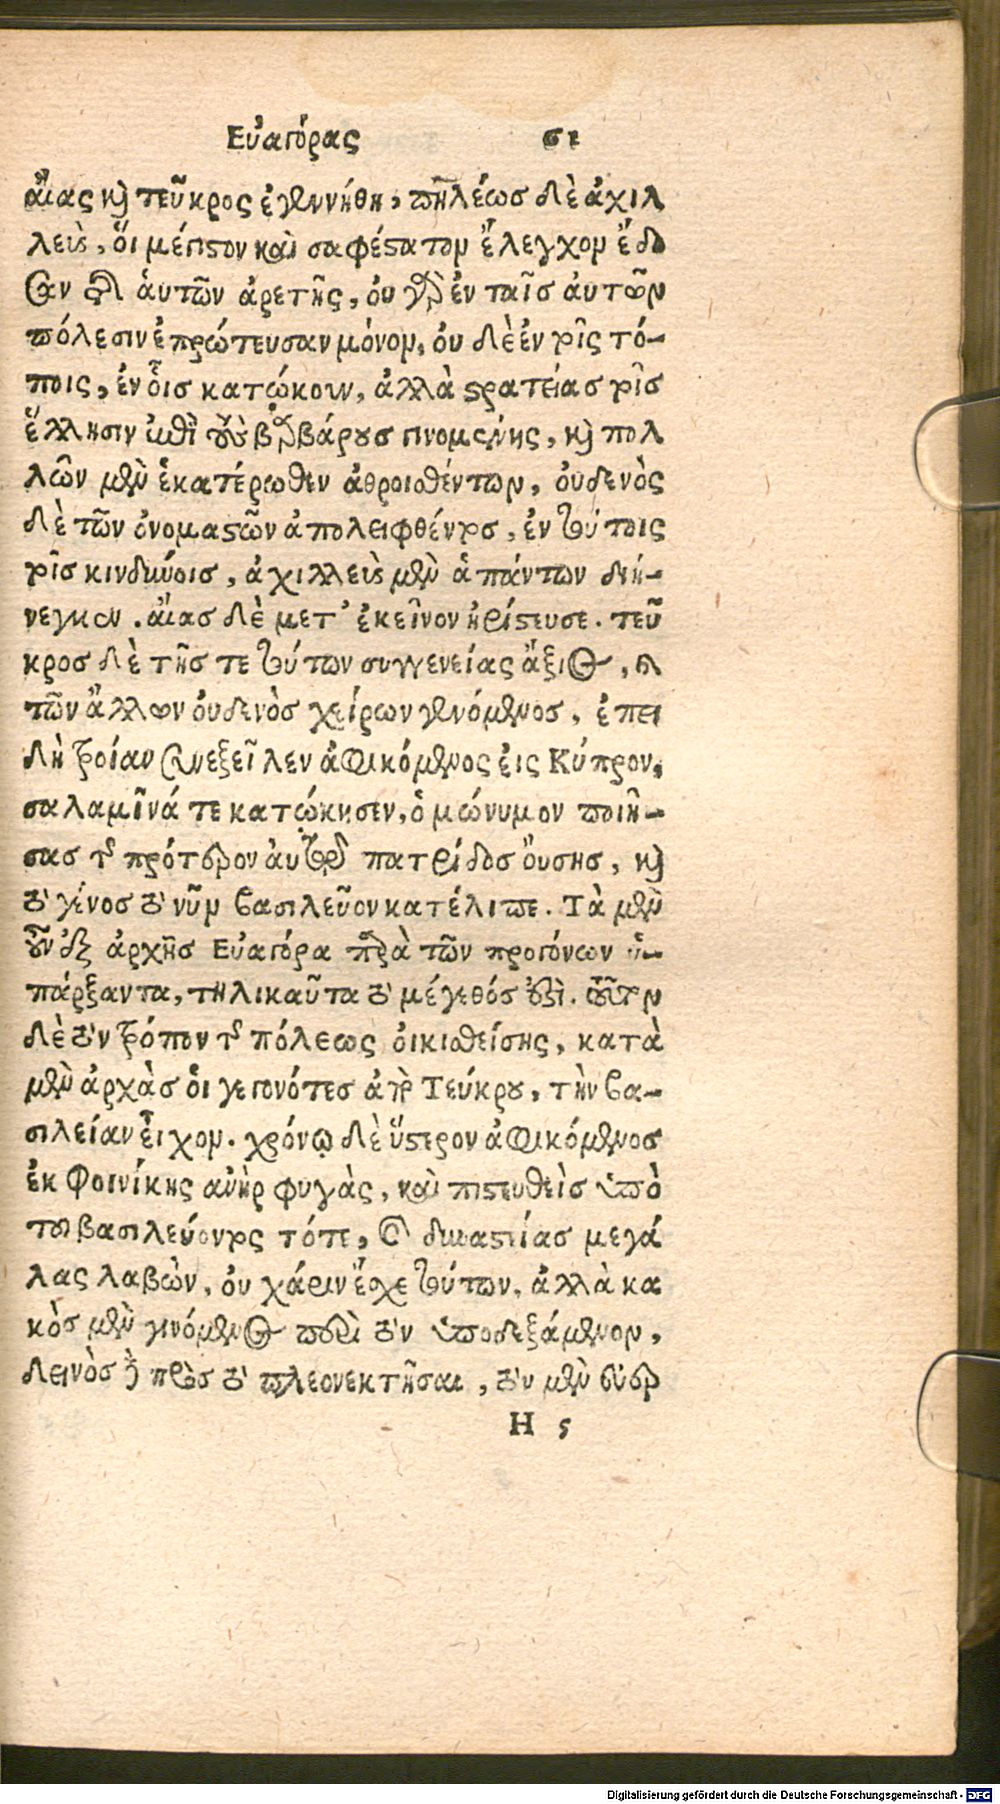 Εὐαγόρας σι
αἴας καὶ τεῦκρος ἐγεννήθη, πηλέως δὲ ἀχιλ
λεὺς, ὅι μέγιστον καὶ σαφέστατον ἔλεγχον ἔδο
σαν τῆς ἁυτῶν ἀρετῆς, ὀυ γὰρ ἐν ταῖς ἁυτῶν
πόλεσιν ἐπρώτευσαν μόνον, ὀυδὲ ἐν τοῖς τό-
ποις, ἐν οἷς κατῴκουν, ἀλλὰ στρατείας τοῖς
ἕλλησιν ἐπὶ τοὺς βαρβάρους γινομένης, καὶ πολ
λῶν μὲν ἑκατέρωθεν ἀθροισθέντων, ὀυδενὸς
δὲ τῶν ὀνομαστῶν ἀπολειφθέντος, ἐν τούτοις
τοῖς κινδύνοις, ἀχιλλεὺς μὲν ἁπάντων διή-
νεγκεν. αἴας δὲ μετ' ἐκεῖνον ἠρίστευσε. τεῦ
κρος δὲ τῆς τε τούτων συγγενείας ἄξιος, καὶ
τῶν ἄλλων ὀυδενὸς χείρων γενόμενος, ἐπει
δὴ τροίαν συνεξεῖλεν ἀφικόμενος ἐις Κύπρον,
σαλαμῖνά τε κατῴκησεν, ὁμώνυμον ποιή-
σας τῆς πρότερον ἀυτοῦ πατρίδος ὄυσης, καὶ
τὸ γένος τὸ νῦν βασιλεῦον κατέλιπε. Τὰ μὲν
οὖν ἐξ ἀρχῆς Εὐαγόρα παρὰ τῶν προγόνων ὑ-
πάρξαντα, τηλικαῦτα τὸ μέγεθός ἐστι. τοῦτον
δὲ τὸν τρόπον τῆς πόλεως ὀικισθείσης, κατὰ
μὲν ἀρχὰς ὁι γεγονότες ἀπὸ Τεύκρου, τὴν βα-
σιλείαν εἶχον. χρόνῳ δὲ ὕστερον ἀφικόμενος
ἐκ Φοινίκης ἀνὴρ φυγὰς, καὶ πιστευθεὶς ὑπὸ
του βασιλεύοντος τότε, καὶ δυναστείας μεγά
λας λαβὼν, ὀυ χάριν ἔσχε τούτων, ἀλλὰ κα
κὸς μὲν γινόμενος περὶ τὸν ὑποδεξάμενον,
δεινὸς δὲ πρὸς τὸ πλεονεκτῆσαι, τὸν μὲν ἐυερ
Η ς
Digitalisierung gefördert durch die Deutsche Forschungsgemeinschaft - DFG